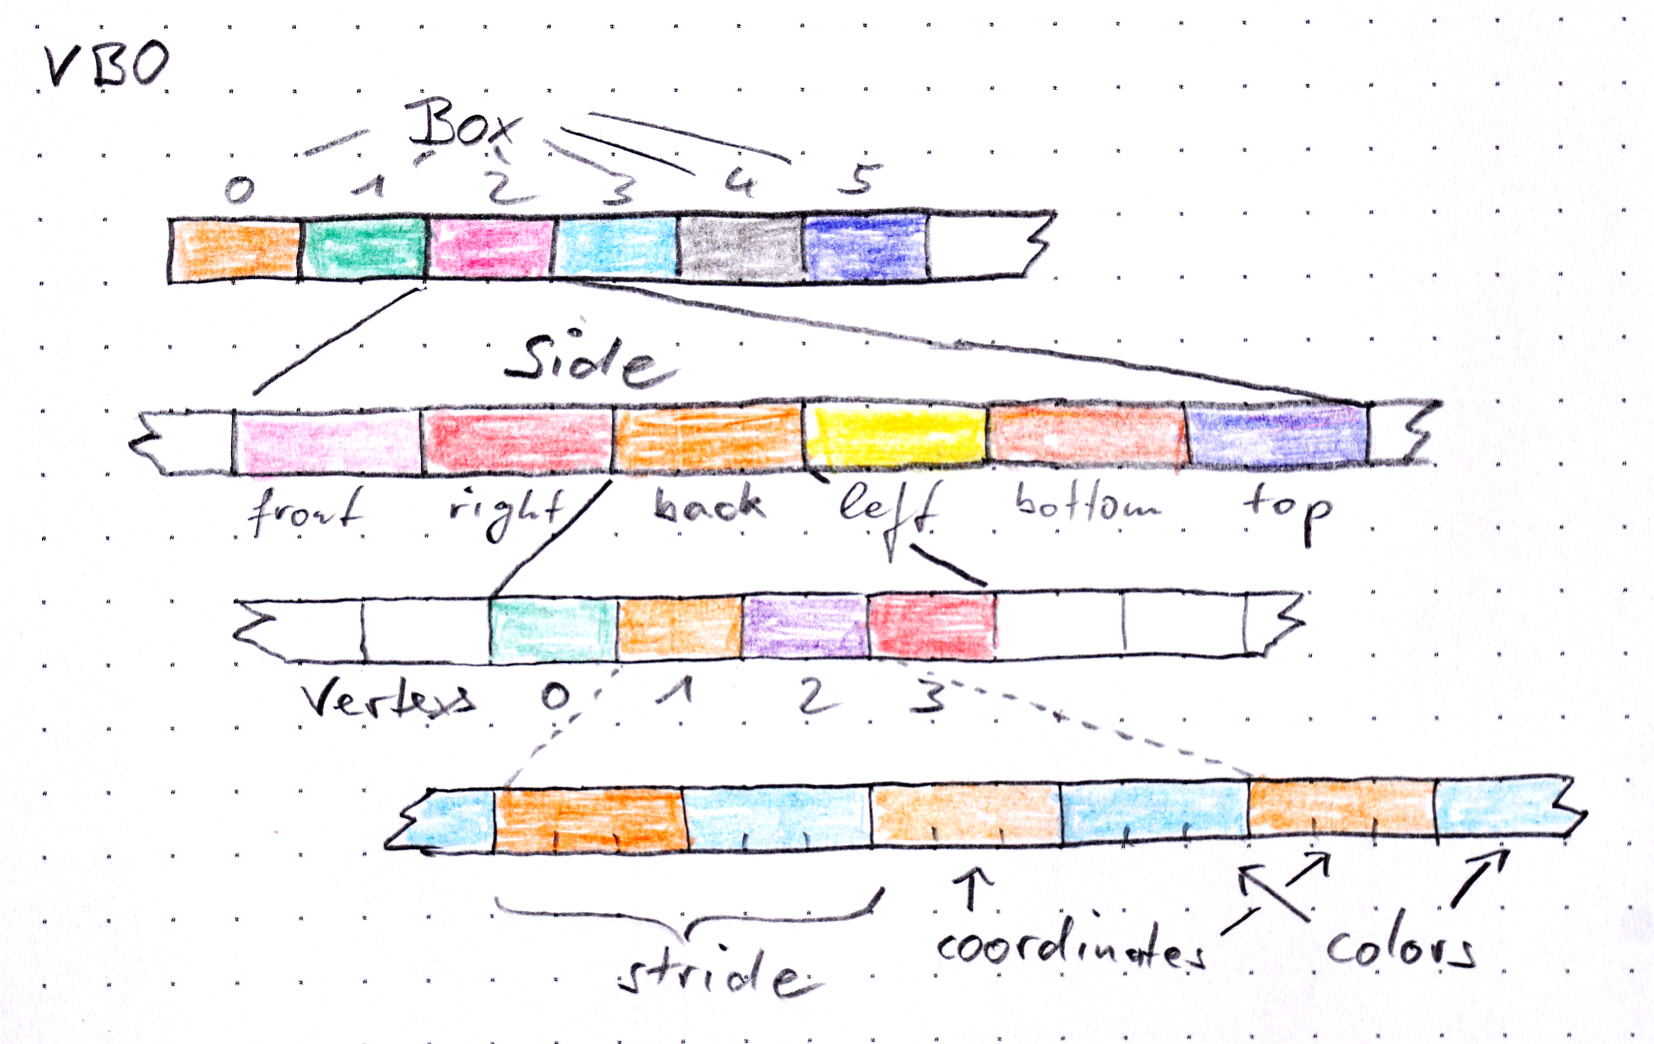 VBO
Box
0 1 2 3 4 5
Side
front right back left bottom top
Vertexs 0 1 2 3
stride
coordinates
colors